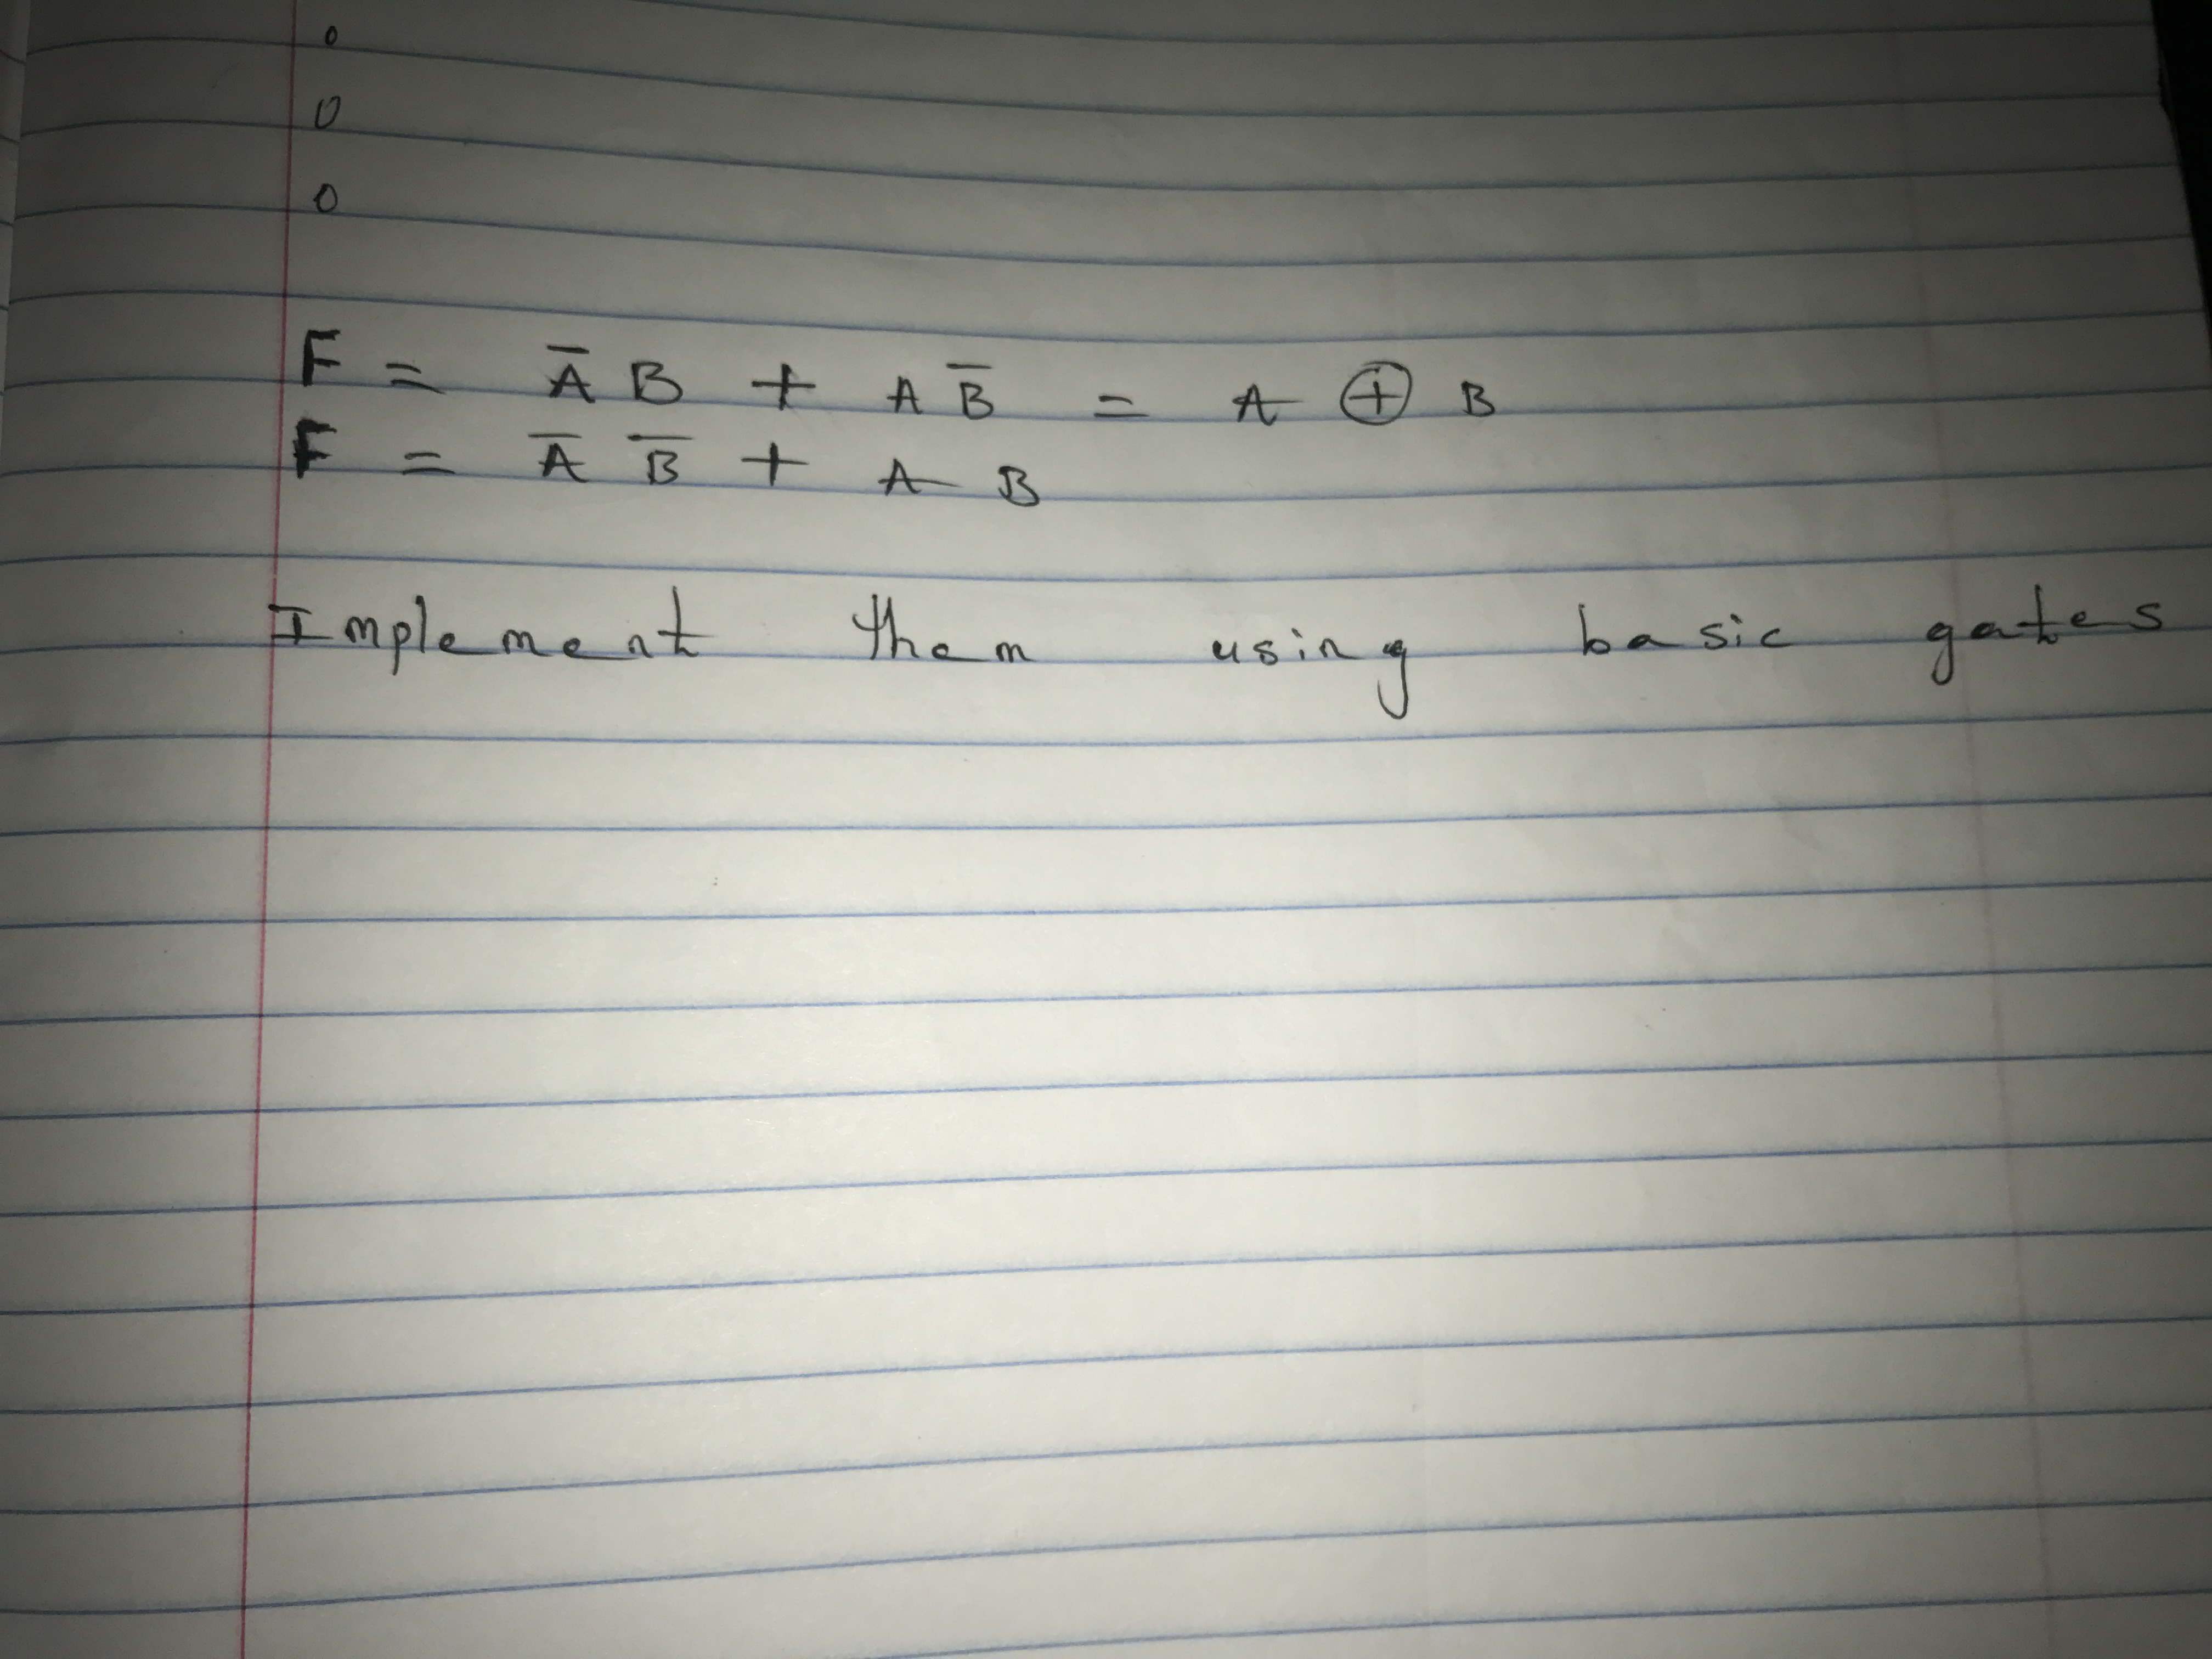 0
0
0
F = A̅ B + A B̅ = A ⊕ B
F = A̅ B̅ + A B
Implement them using basic gates